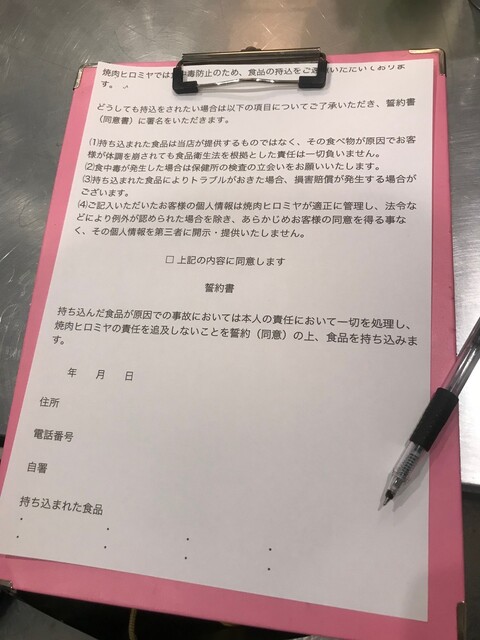 焼肉ヒロミヤでは食中毒防止のため、食品の持込をご遠慮いただいておりま
す。
どうしても持込をされたい場合は以下の項目についてご了承いただき、誓約書
(同意書)に署名をいただきます。
(1)持ち込まれた食品は当店が提供するものではなく、その食べ物が原因でお客
様が体調を崩されても食品衛生法を根拠とした責任は一切負いません。
(2)食中毒が発生した場合は保健所の検査の立会いをお願いいたします。
(3)持ち込まれた食品によりトラブルがおきた場合、損害賠償が発生する場合が
ございます。
(4)ご記入いただいたお客様の個人情報は焼肉ヒロミヤが適正に管理し、法令な
どにより例外が認められた場合を除き、あらかじめお客様の同意を得る事な
く、その個人情報を第三者に開示・提供いたしません。
□ 上記の内容に同意します
誓約書
持ち込んだ食品が原因での事故においては本人の責任において一切を処理し、
焼肉ヒロミヤの責任を追及しないことを誓約(同意)の上、食品を持ち込みま
す。
年 月 日
住所
電話番号
自署
持ち込まれた食品
・ ・ ・ ・
・ ・ ・ ・